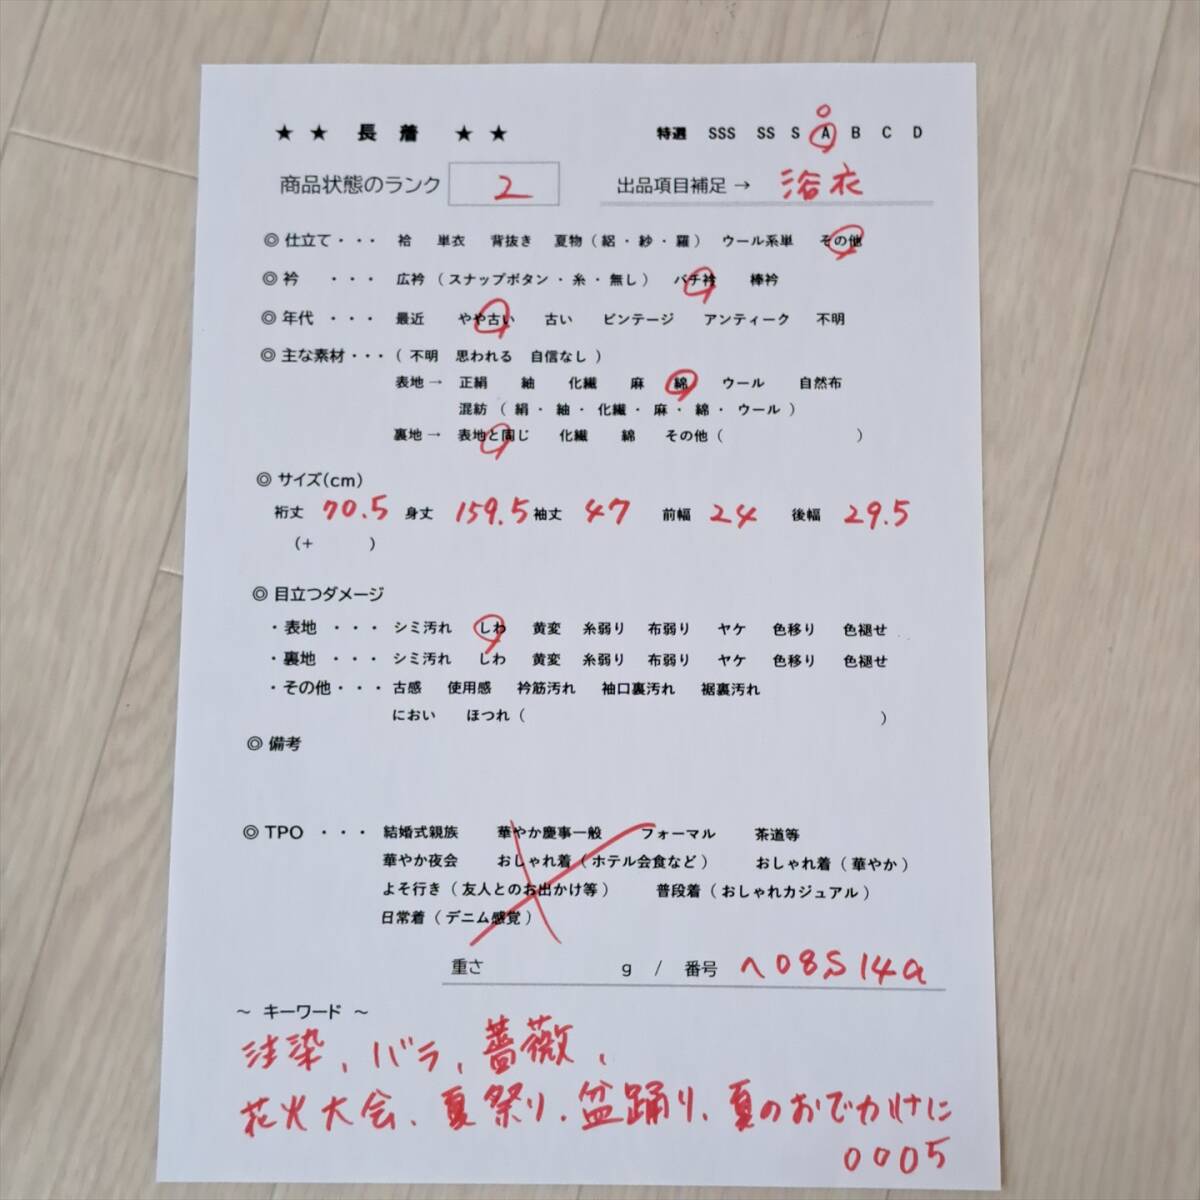 ★ ★ 長 着 ★ ★ 特選 SSS SS S A B C D
商品状態のランク 2 出品項目補足 → 浴衣
◎ 仕立て・・・ 袷 単衣 背抜き 夏物（絽・紗・羅） ウール系単 その他
◎ 衿 ・・・ 広衿（スナップボタン・糸・無し） バチ衿 棒衿
◎ 年代 ・・・ 最近 やや古い 古い ビンテージ アンティーク 不明
◎ 主な素材・・・（ 不明 思われる 自信なし ）
表地 → 正絹 紬 化繊 麻 綿 ウール 自然布
混紡（ 絹・紬・化繊・麻・綿・ウール ）
裏地 → 表地と同じ 化繊 綿 その他（ ）
◎ サイズ(cm)
裄丈 70.5 身丈 159.5 袖丈 47 前幅 24 後幅 29.5
（+ ）
◎ 目立つダメージ
・表地 ・・・ シミ汚れ しわ 黄変 糸弱り 布弱り ヤケ 色移り 色褪せ
・裏地 ・・・ シミ汚れ しわ 黄変 糸弱り 布弱り ヤケ 色移り 色褪せ
・その他・・・ 古感 使用感 衿筋汚れ 袖口裏汚れ 裾裏汚れ
におい ほつれ（ ）
◎ 備考
◎ TPO ・・・ 結婚式親族 華やか慶事一般 フォーマル 茶道等
華やか夜会 おしゃれ着（ホテル会食など） おしゃれ着（華やか）
よそ行き（友人とのお出かけ等） 普段着（おしゃれカジュアル）
日常着（デニム感覚）
重さ g / 番号 へ08S14a
～ キーワード ～
注染、バラ、薔薇、
花火大会、夏祭り、盆踊り、夏のおでかけに
0005